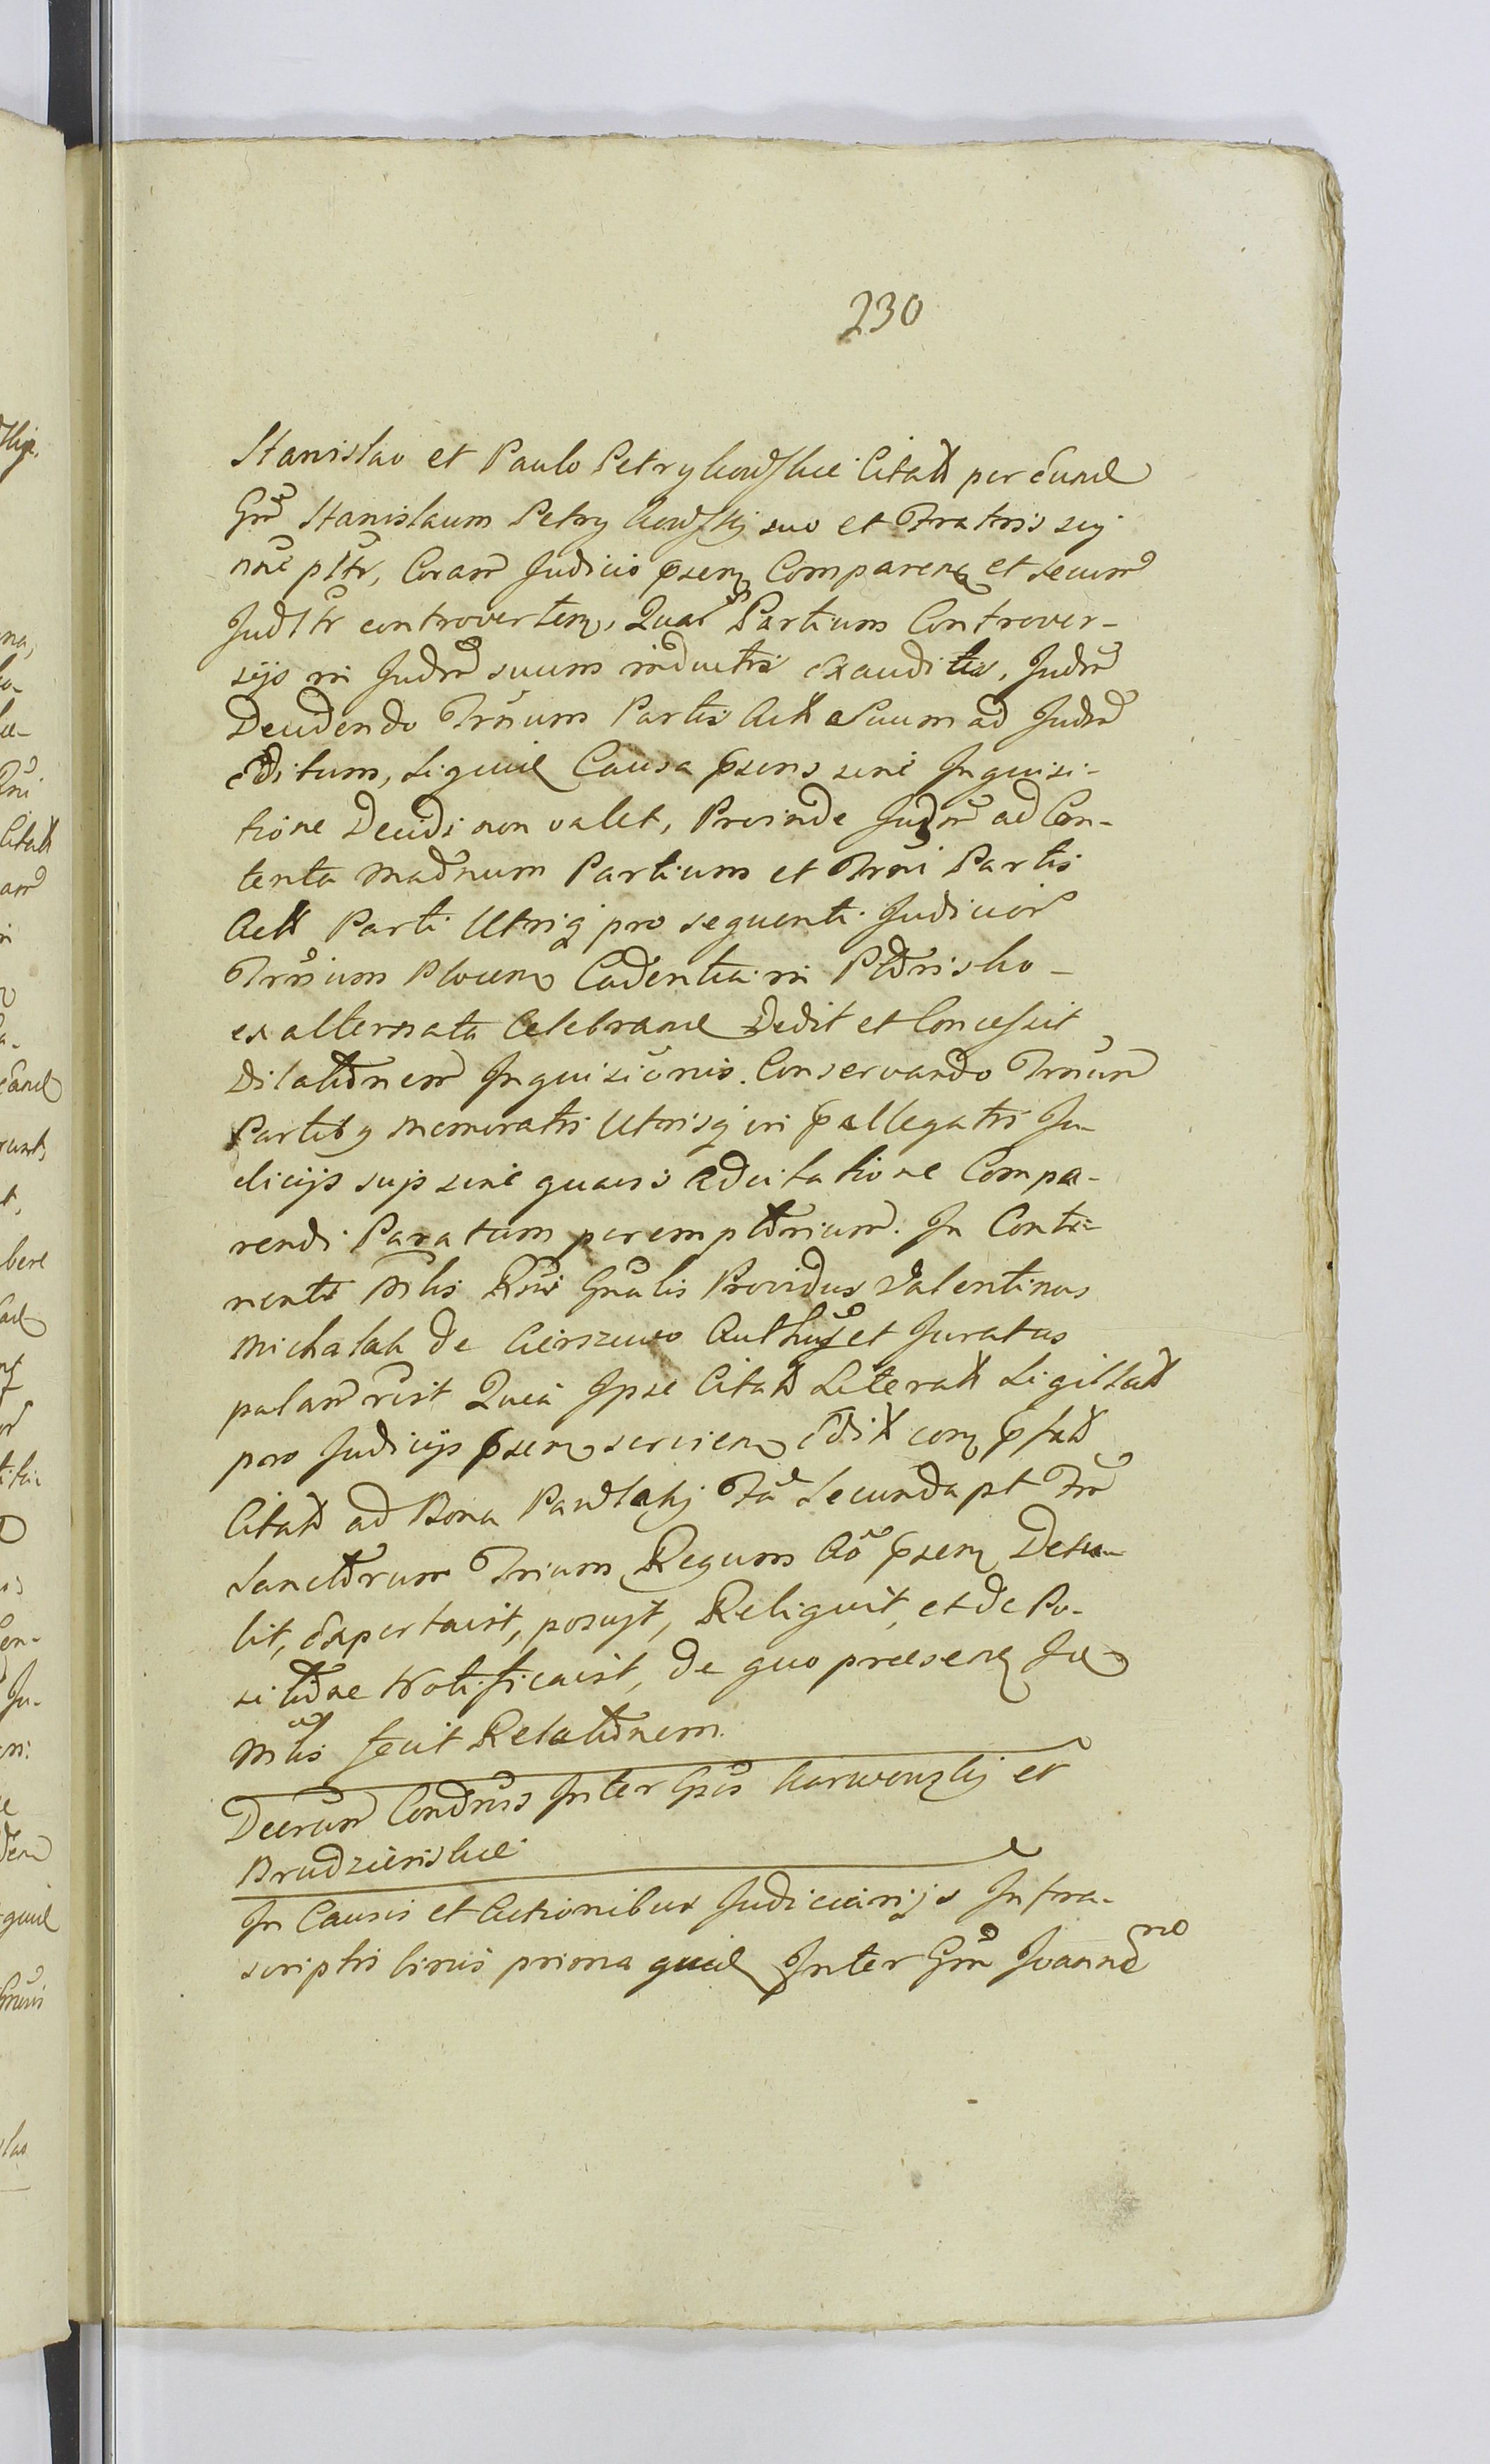 230
Stanislao et Paulo Petrykowskie Citatt per Eund
Gnū Stanislaum Petrykowskij suo et Fratris sui
noīe pltr, Coram Judicio psenᶎ Comparenᶎ et secum
Judltr controverten, Quar Partium Controver-
sijs in Judm suum inductis exauditis, Judm
Decidendo Trnum Partis Act a Suum ad Judm
editum, siquid Causa psens sine Inquisi-
tione Decidi non valet, Proinde Judm ad Con-
tenta madnum Partium et Trni Partis
Act Parti Utriq pro sequenti Judicior
Trnium Plocen Cadentia in
ex alternata Celebrand Dedit et Concessit
Dilationem Inquisiōnis. Conservando Trnum
Partibg memoratis Utrisq in pallegatis Ju-
dicijs sujs sine quavis adcitatione Compa-
rendi Paratum peremptorium. In Conti-
nenti Mlis Rni Gnalis Providus Valentinus
Michalak de Cierszewo Authus et Juratus
palam rēit Quia Ipse Citatt Literatt Sigillatt
pro Judicijs psen servien edit con pfatt
Citatt ad Bona Pawlaki Fa Secunda pt Frn
Sanctorum Trium Regum Ao psen Detu-
lit, Expertavit, posuyt, Reliquit, et de Po-
sitione Notificavit, de quo præsenᶎ Su
Mlis fecit Relationem.
Decrum Condnis Inter Gsos Karwenskij et
Brudzienskie
In Causis et Actionibus Judiciarijs Infra-
scriptis binis prima quid Inter Gm Joanne